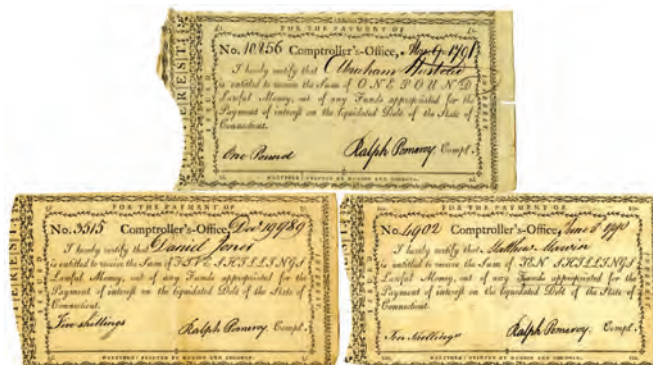 FOR THE PAYMENT OF
No. 10256 Comptroller's-Office,
I hereby certify that Abraham
is entitled to receive the Sum of ONE POUND
Lawful Money, out of any Funds appropriated for the
Payment of interest on the liquidated Debt of the State of
Connecticut.
One Pound Ralph Pomeroy Compt.
HARTFORD: PRINTED BY HUDSON AND GOODWIN.
INTEREST
FOR THE PAYMENT OF
No. 3515 Comptroller's-Office, Dec 19 89
I hereby certify that Daniel Jones
is entitled to receive the Sum of FIVE SHILLINGS
Lawful Money, out of any Funds appropriated for the
Payment of interest on the liquidated Debt of the State of
Connecticut.
Five shillings Ralph Pomeroy Compt.
HARTFORD: PRINTED BY HUDSON AND GOODWIN.
INTEREST
FOR THE PAYMENT OF
No. 4902 Comptroller's-Office, June 8 1790
I hereby certify that Matthew Merwin
is entitled to receive the Sum of TEN SHILLINGS
Lawful Money, out of any Funds appropriated for the
Payment of interest on the liquidated Debt of the State of
Connecticut.
Ten Shillings Ralph Pomeroy, Compt.
HARTFORD: PRINTED BY HUDSON AND GOODWIN.